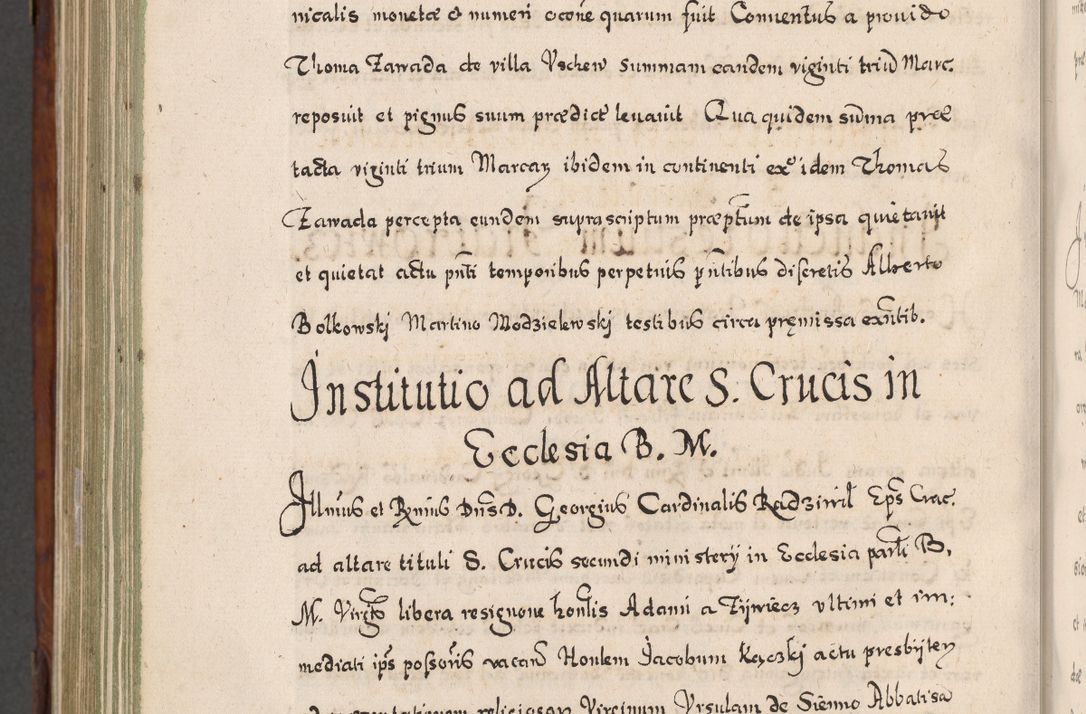 nicalis monetæ & numeri ocone quarum fuit Conuentus a prouido
Thoma Zawada de villa Vschew summam eandem viginti triu Marc.
reposuit et pignus suum prædict leuauit Qua quidem sum̄a præ
tacta viginti trium Marcaꝝ ibidem in continenti exº idem Thomas
Zawada percepta eundem suprascriptum præptum de ipsa quietauit
et quietat actu pn̄ti temporibus perpetuis pn̄tibus discretis Alberto
Bolkowskj Martino Modzielewskj testibus circa pręmissa exn̄tib.
Institutio ad Altare S. Crucis in
Ecclesia B. M.
Illmus et Rmus Dns D. Georgius Cardinalis Radziwil Eps Crac.
ad altare tituli S. Crucis secundi ministerÿ in Ecclesia parłi B.
M. Virgis libera resignone honlis Adami a Zijwiecz vltimi et im:
mediati ips possoris vacan Honlem Jacobum Keyczkj actu presbijteꝝ
ad presentationem religiosaꝝ Virginum Vrsulam de Sienno Abbatisa